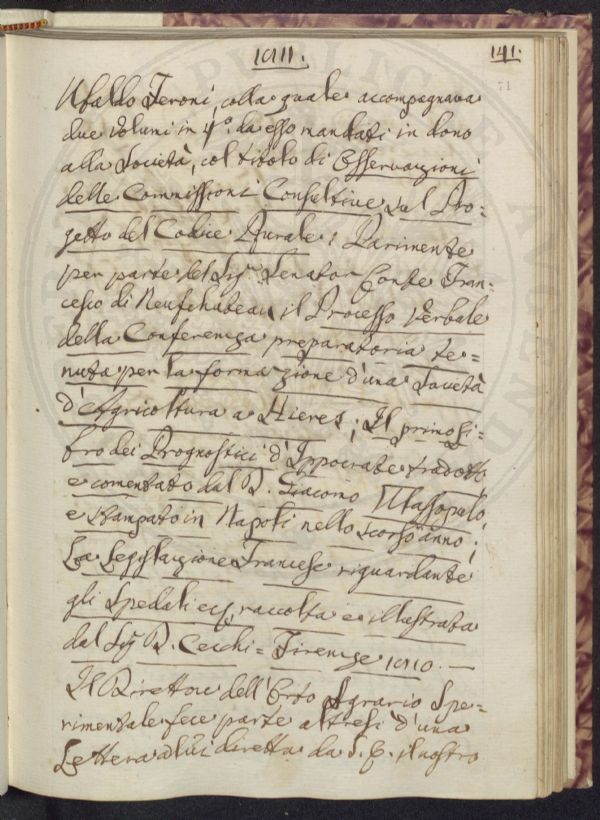 1811.
141.
71
Ubaldo Feroni, colla quale accompagnava
due volumi in 4°. da esso mandati in dono
alla Società, col titolo di Osservazioni
delle Commissioni Consultive sul Pro=
getto del Codice Rurale; Parimente
per parte del Sig. Senator Conte Fran=
cesco di Neufchateau il Processo verbale
della Conferenza preparatoria te=
nuta per la formazione d'una Società
d'Agricoltura a Hieres; Il primo li=
bro dei Prognostici d'Ippocrate tradotto
e comentato dal D. Giacomo
e stampato in Napoli nello scorso anno;
La Legislazione Francese riguardante
gli Spedali ec. raccolta e illustrata
dal Sig. D. Cecchi = Firenze 1810. —
Il Direttore dell'Orto Agrario Spe=
rimentale fece parte altresì d'una
Lettera a lui diretta da S. E. il nostro